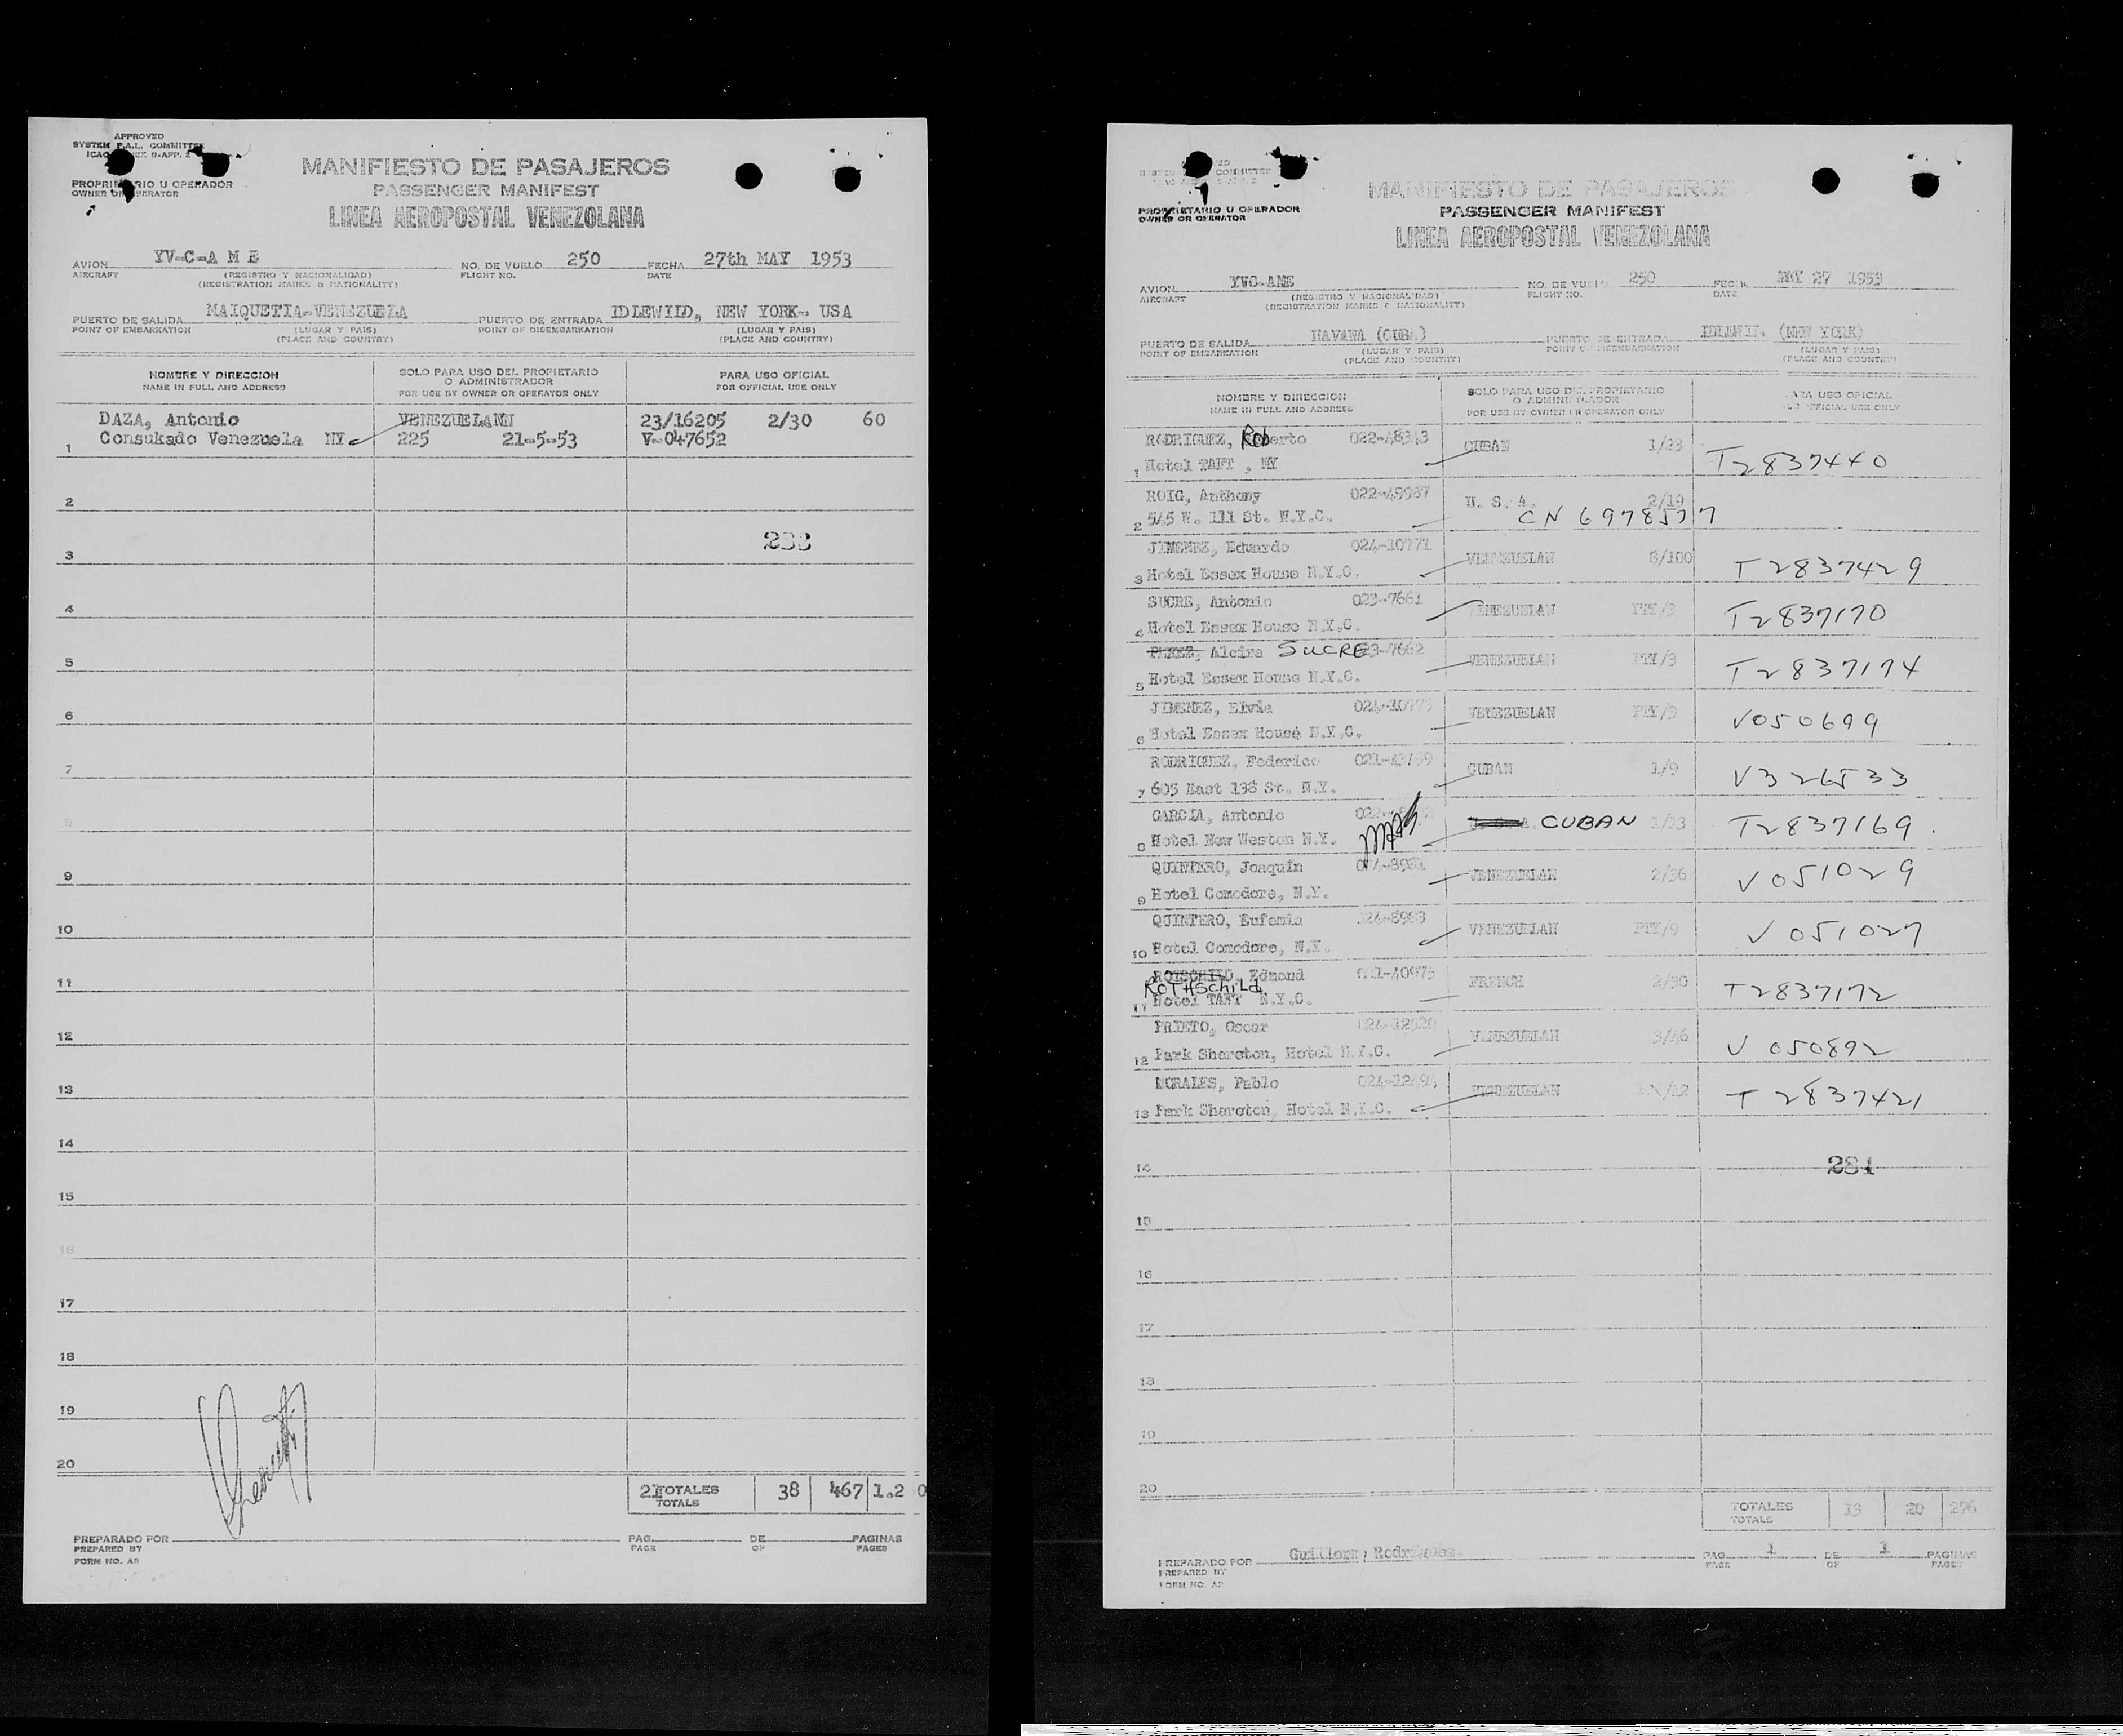 APPROVED
SYSTEM F.A.L. COMMITTEE
PROPRIETARIO U OPERADOR
OWNER OR OPERATOR
MANIFIESTO DE PASAJEROS
PASSENGER MANIFEST
LINEA AEROPOSTAL VENEZOLANA
AVION YV-C-A M E NO. DE VUELO 250 FECHA 27th MAY 1953
AIRCRAFT (REGISTRO Y NACIONALIDAD) FLIGHT NO. DATE
(REGISTRATION MARKS & NATIONALITY)
PUERTO DE SALIDA MAIQUETIA-VENEZUELA PUERTO DE ENTRADA IDLEWILD, NEW YORK- USA
POINT OF EMBARKATION (LUGAR Y PAIS) POINT OF DISEMBARKATION (LUGAR Y PAIS)
(PLACE AND COUNTRY) (PLACE AND COUNTRY)
NOMBRE Y DIRECCION SOLO PARA USO DEL PROPIETARIO O ADMINISTRADOR PARA USO OFICIAL
NAME IN FULL AND ADDRESS FOR USE BY OWNER OR OPERATOR ONLY FOR OFFICIAL USE ONLY
DAZA, Antonio VENEZUELANN 23/16205 2/30 60
1 Consukado Venezuela NY 225 21-5-53 V-047652
2
3 283
4
5
6
7
8
9
10
11
12
13
14
15
16
17
18
19
20
21 TOTALES 38 467
TOTALS
PREPARADO POR PAG. DE PAGINAS
PREPARED BY PAGE OF PAGES
FORM NO. A2
PROPRIETARIO U OPERADOR
OWNER OR OPERATOR
MANIFIESTO DE PASAJEROS
PASSENGER MANIFEST
LINEA AEROPOSTAL VENEZOLANA
AVION YVC-AME NO. DE VUELO 250 FECHA MAY 27 1953
AIRCRAFT (REGISTRO Y NACIONALIDAD) FLIGHT NO. DATE
(REGISTRATION MARKS & NATIONALITY)
PUERTO DE SALIDA HAVANA (CUBA) PUERTO DE ENTRADA (NEW YORK)
POINT OF EMBARKATION (LUGAR Y PAIS) POINT OF DISEMBARKATION (LUGAR Y PAIS)
(PLACE AND COUNTRY) (PLACE AND COUNTRY)
NOMBRE Y DIRECCION SOLO PARA USO DEL PROPIETARIO O ADMINISTRADOR PARA USO OFICIAL
NAME IN FULL AND ADDRESS FOR USE BY OWNER OR OPERATOR ONLY FOR OFFICIAL USE ONLY
RODRIGUEZ, Roberto 022-48343 CUBAN T2837440
1 Hotel TAFT , NY
ROIG, Anthony U. S. A. 2/19
2 545 W. 111 St. N.Y.C. CN 6978577
JIMENEZ, Eduardo 024-10771 VENEZUELAN 8/100
3 Hotel Essex House N.Y.C. T2837429
SUCRE, Antonio 023-7661 VENEZUELAN PTY/3
4 Hotel Essex House N.Y.C. T2837170
PEREZ, Alcira SUCRE 23-7662 VENEZUELAN PTY/3
5 Hotel Essex House N.Y.C. T2837174
JIMENEZ, Elvia VENEZUELAN PTY/3
6 Hotel Essex House N.Y.C. V050699
RODRIGUEZ, Federico CUBAN 1/9
7 605 East 138 St. N.Y. V326533
GARCIA, Antonio CUBAN
8 Hotel New Weston N.Y. T2837169
QUINTERO, Joaquin VENEZUELAN 2/36
9 Hotel Comodore, N.Y. V051029
QUINTERO, Eufemia VENEZUELAN PTY/9
10 Hotel Comodore, N.Y. V051027
ROTSCHILD, Edmond 021-40975 FRENCH 2/30
ROTHSCHILD
11 Hotel TAFT N.Y.C. T2837172
PRIETO, Oscar VENEZUELAN 3/46
12 Park Sheraton, Hotel N.Y.C. V 050892
MORALES, Pablo VENEZUELAN
13 Park Sharoton, Hotel N.Y.C. T 2837421
14 284
15
16
17
18
19
20
TOTALES 13 20 276
TOTALS
PREPARADO POR PAG. 1 DE 1 PAGINAS
PREPARED BY PAGE OF PAGES
FORM NO. A2